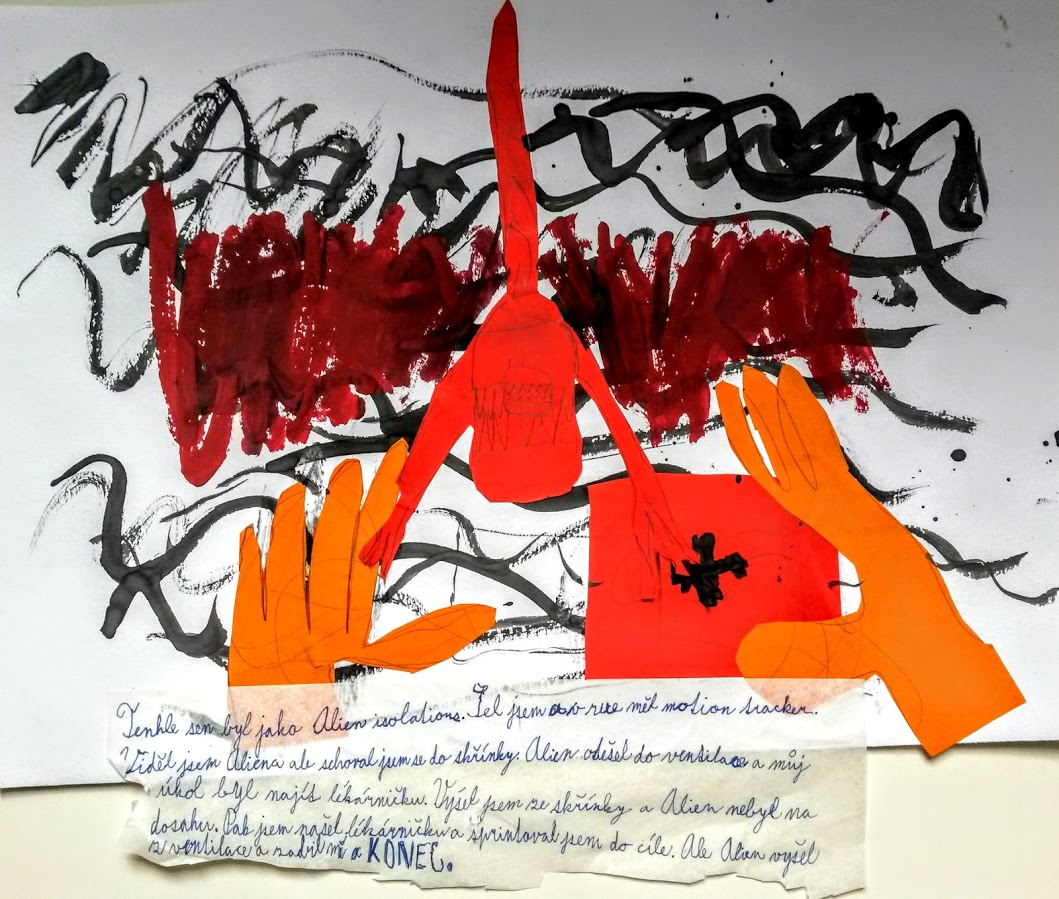 Tenhle sen byl jako Alien isolations. Šel jsem a v ruce měl motion tracker.
Viděl jsem Aliena ale schoval jsem se do skřínky. Alien odešel do ventilace a můj
úkol byl najít lékárničku. Vyšel jsem ze skřínky a Alien nebyl na
dosahu. Pak jsem našel lékárničku a sprintoval jsem do cíle. Ale Alien vyšel
z ventilace a zabil mě a KONEC.